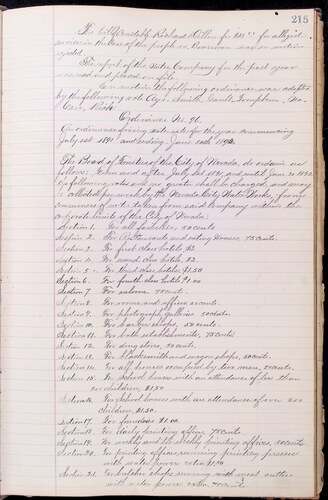 215
The bill of Constable Richard Dillon for $20.75 for alleged
services in the Case of the people vs. was on motion
rejected.
The report of the Water Company for the past year
was read and placed on file.
On motion the following ordinance was adopted
by the following vote Ayes. Smith, Gault,
Ordinance No. 96.
An ordinance fixing water rates for the year commencing
July 1st 1891 and ending June 30th 1892.
The Board of Trustees of the City of Nevada, do ordain as
follows: From and after July 1st 1891, and until June 30 1892
the following rates and no greater shall be charged, and
collected by the Nevada City Water Works, for any
consumers of water taken from said Company within the
corporate limits of the City of Nevada:
Section 1. For all bakeries, 50 cents
Section 2. For Restaurants and eating houses, 75 cents.
Section 3. For first class hotels, $3
Section 4. For second class hotels, $2.
Section 5. For third class hotels, $1.50
Section 6. For fourth class hotels $1.00
Section 7. For saloons 75 cents.
Section 8. For rooms and offices cents.
Section 9. For photograph galleries 50 cts.
Section 10. For barber shops, 50 cents.
Section 11. For bath establishments, 75 cents
Section 12. For drug stores, 50 cents.
Section 13. For blacksmith and wagon shops, 50 cents.
Section 14. For all houses occupied by two men, cents.
Section 15. For School houses with an attendance of less than
200 children, $1.50
Section 16. For School houses with an attendance of over 200
children, $2.50.
Section 17. For foundries $1.00
Section 18. For Daily printing office, 75 cents
Section 19. For weekly and tri-weekly printing offices, 50 cents
Section 20. For printing offices running printing presses
with water power extra
Section 21. For butcher shops running with meat cutters
with water power extra